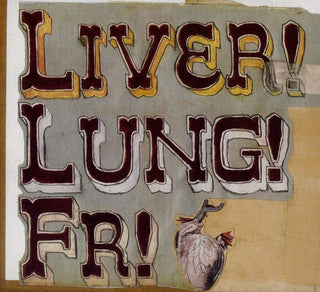 LIVER!
LUNG!
FR!